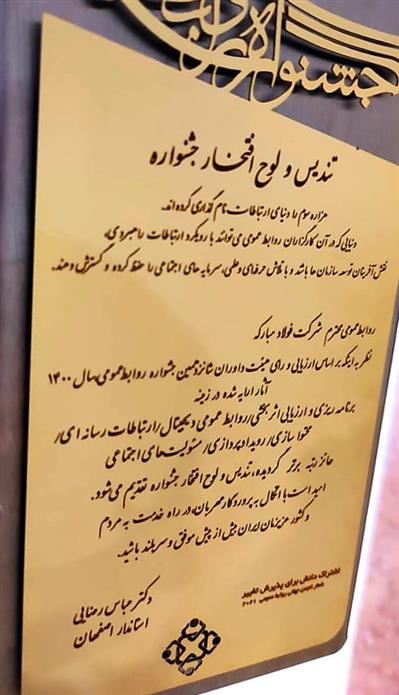 جشنواره
تندیس و لوح افتخار جشنواره
هزاره سوم را دنیای ارتباطات نام گذاری کرده‌اند.
دنیایی که در آن کارگزاران روابط عمومی می‌توانند با رویکرد ارتباطات راهبردی،
نقش آفرینان توسعه سازمان‌ها باشند و با تلاش حرفه‌ای و علمی، سرمایه‌های اجتماعی را حفظ کرده و گسترش دهند.
روابط عمومی محترم شرکت فولاد مبارکه
نظر به اینکه بر اساس ارزیابی و رای هیئت داوران شانزدهمین جشنواره روابط عمومی سال ۱۴۰۰
آثار ارایه شده در زمینه
برنامه ریزی و ارزیابی اثربخشی/روابط عمومی دیجیتال/ارتباطات رسانه ای/
محتوا سازی/رویدادپردازی/مسئولیت‌های اجتماعی
حائز رتبه برتر گردیده، تندیس و لوح افتخار جشنواره تقدیم می‌شود.
امید است با اتکال به پروردگار مهربان، در راه خدمت به مردم
و کشور عزیزمان ایران بیش از پیش موفق و سربلند باشید.
اشتراک دانش برای پذیرش تغییر
شعار انجمن جهانی روابط عمومی ۲۰۲۱
دکتر عباس رضایی
استاندار اصفهان